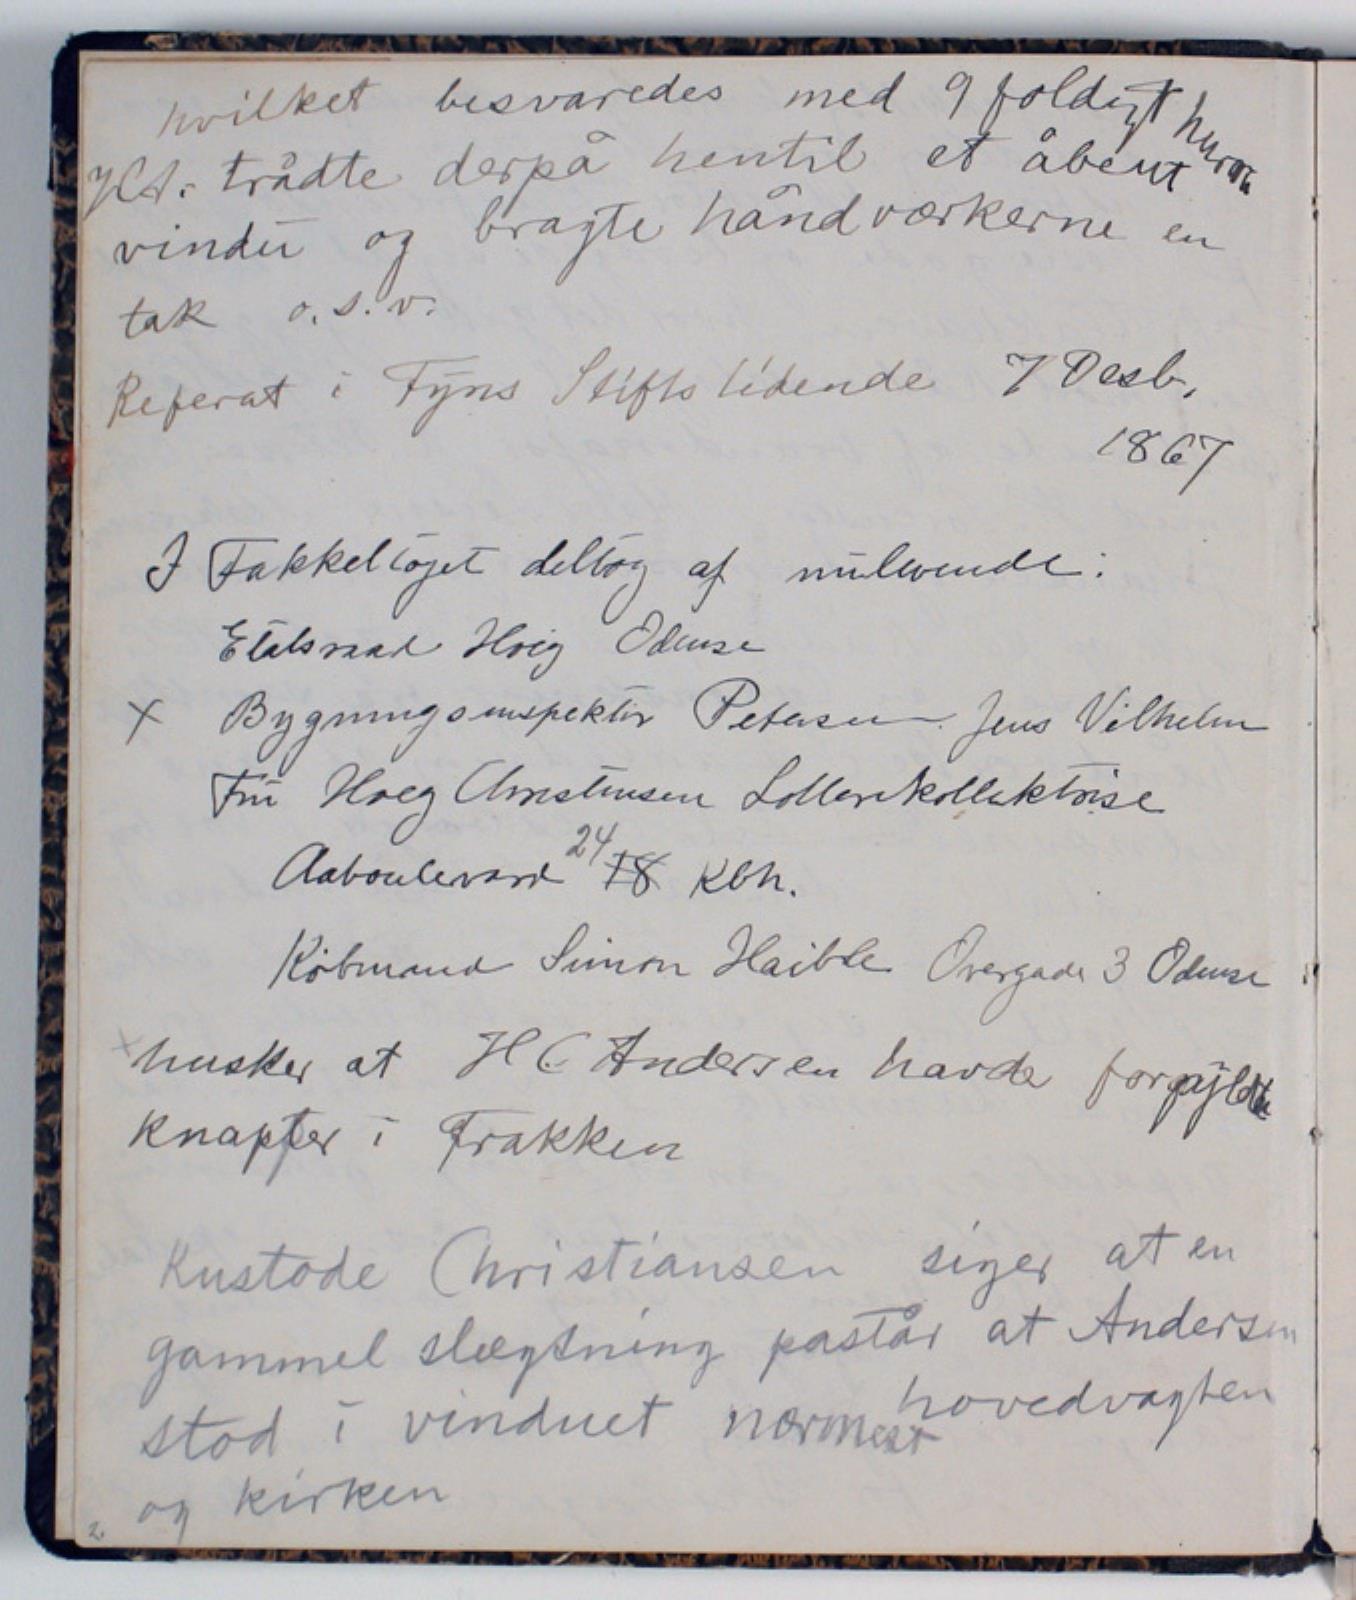 hvilket besvaredes med 9 foldigt hurra
HCA. trådte derpå hentil et åbent
vindu og bragte håndværkerne en
tak o.s.v.
Referat i Fyns Stifts tidende 7 Desb.
1867
I Fakkeltoget deltog af nulevende:
Etatsraad Høeg Odense
x Bygningsinspektør Petersen. Jens Vilhelm
Fru Høeg Christensen Lotterikollektrise
Aaboulevard 24 18 Kbh.
Købmand Simon Haible Overgade 3 Odense
x husker at H C Andersen havde forgyldte
knapper i Frakken
Kustode Christiansen siger at en
gammel slægtning påstår at Andersen
stod i vinduet nærmest hovedvagten
og kirken
2.